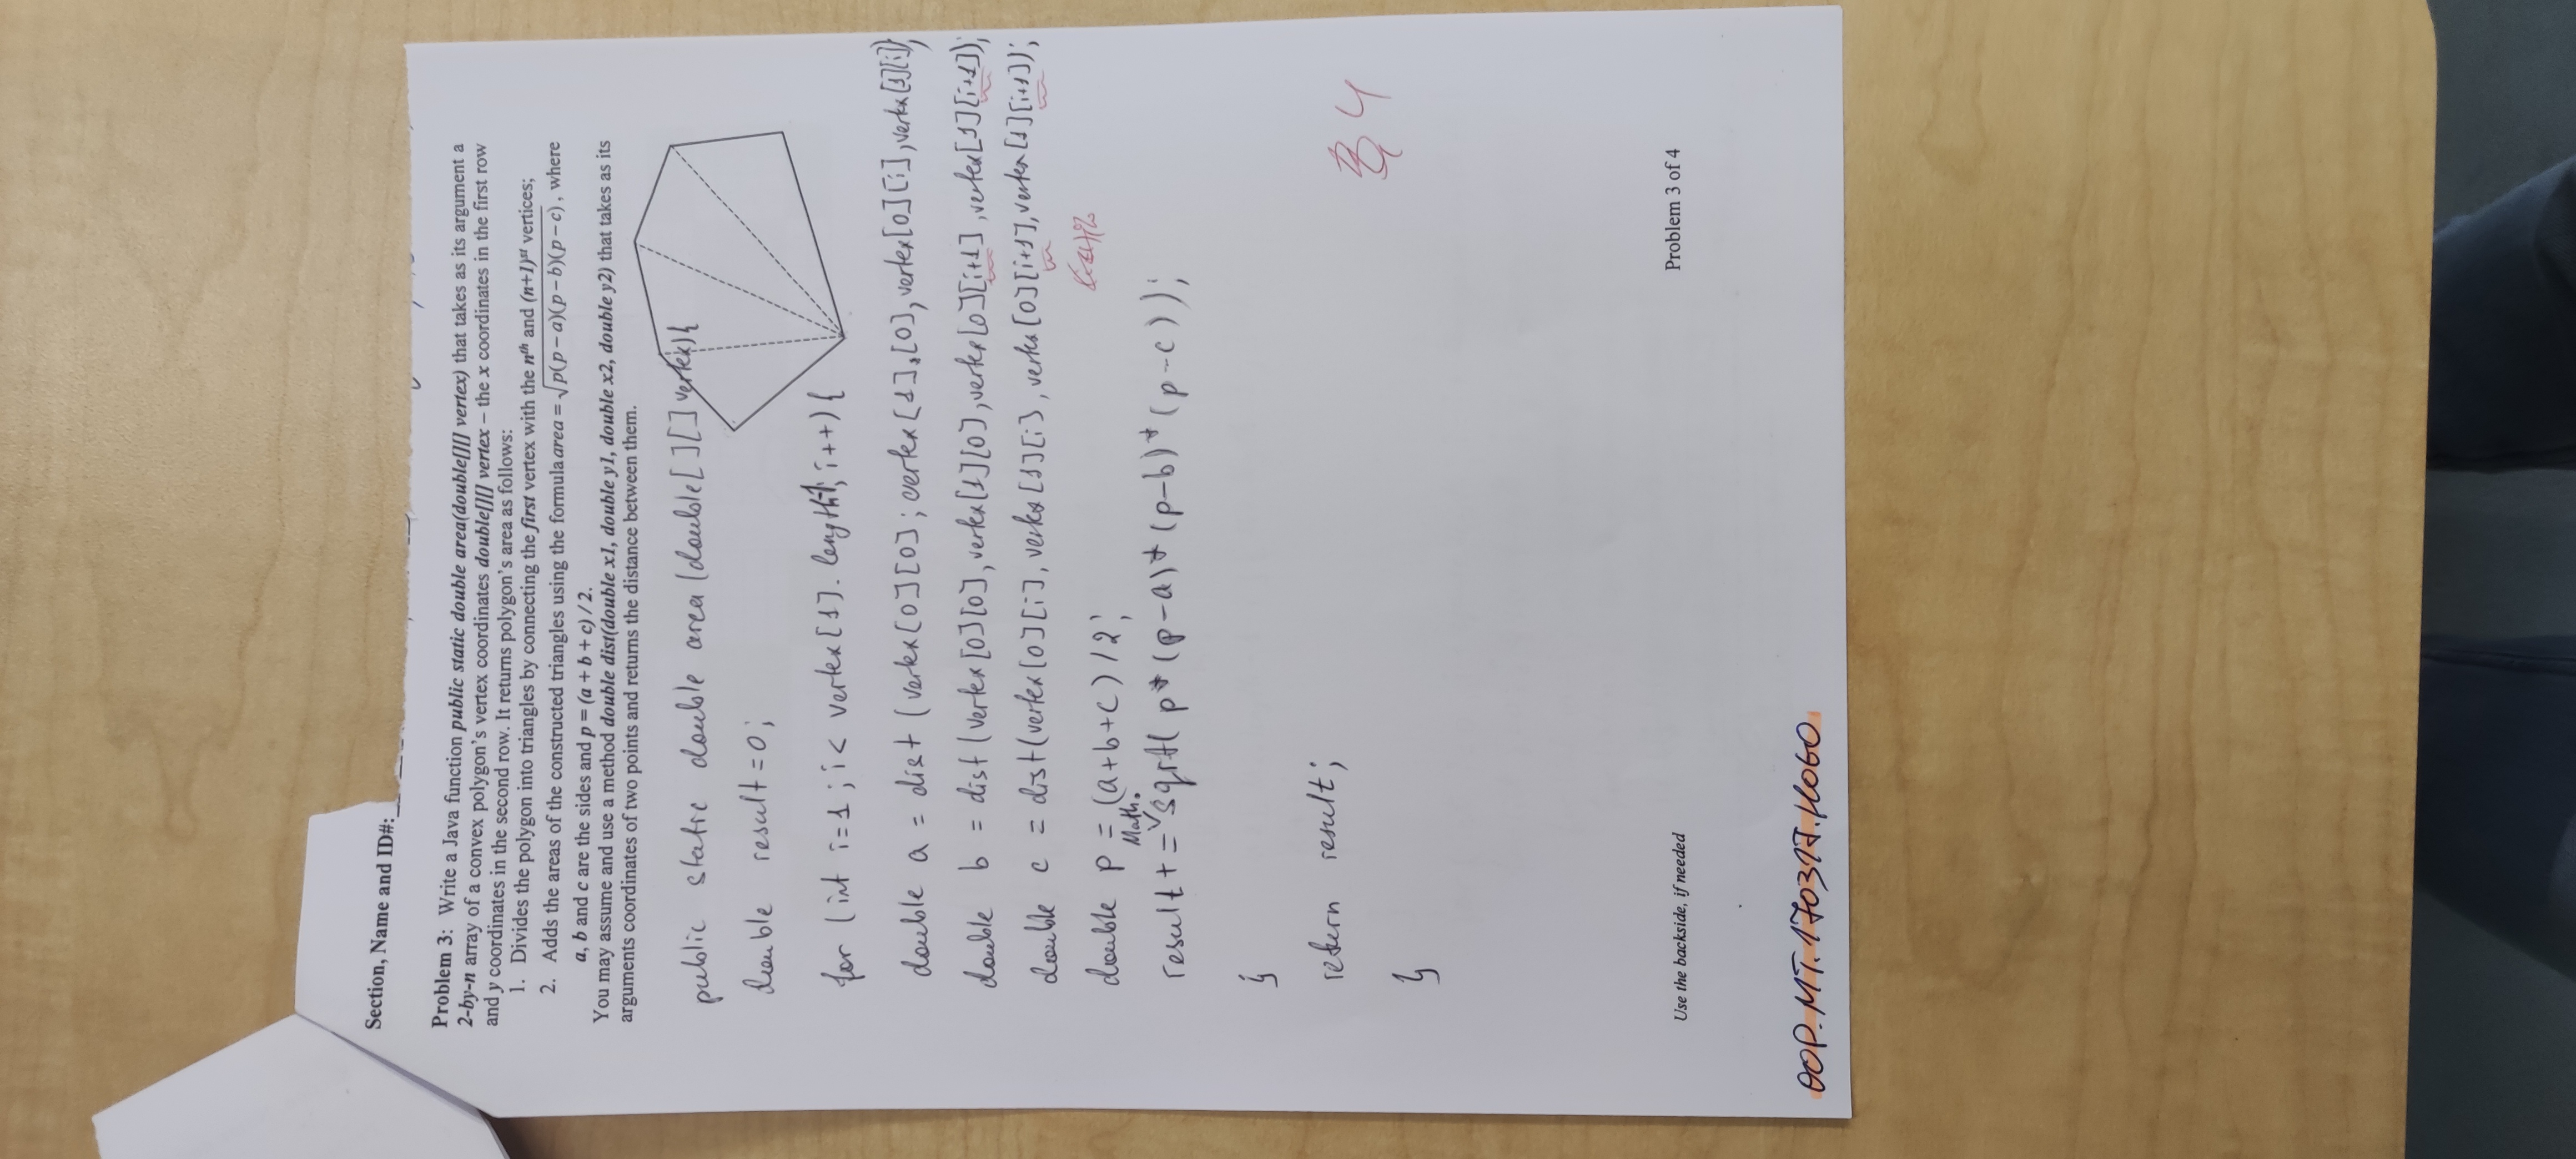 Section, Name and ID#:
Problem 3: Write a Java function public static double area(double[][] vertex) that takes as its argument a
2-by-n array of a convex polygon's vertex coordinates double[][] vertex – the x coordinates in the first row
and y coordinates in the second row. It returns polygon's area as follows:
1. Divides the polygon into triangles by connecting the first vertex with the nth and (n+1)st vertices;
2. Adds the areas of the constructed triangles using the formula area = √p(p − a)(p − b)(p − c), where
a, b and c are the sides and p = (a + b + c) / 2.
You may assume and use a method double dist(double x1, double y1, double x2, double y2) that takes as its
arguments coordinates of two points and returns the distance between them.
public static double area(double[][] vertex){
double result=0;
for (int i=1; i< vertex[1].length-1; i++){
double a = dist (vertex[0][0]; vertex[1],[0], vertex[0][i], vertex[1][i]);
double b = dist(vertex[0][0], vertex[1][0], vertex[0][i+1], vertex[1][i+1]);
double c = dist(vertex[0][i], vertex[1][i], vertex[0][i+1], vertex[1][i+1]);
double p = (a+b+c)/2;
result += Math.sqrt( p*(p-a)*(p-b)*(p-c));
}
return result;
}
4
Use the backside, if needed
Problem 3 of 4
OOP.MT.170317.M060